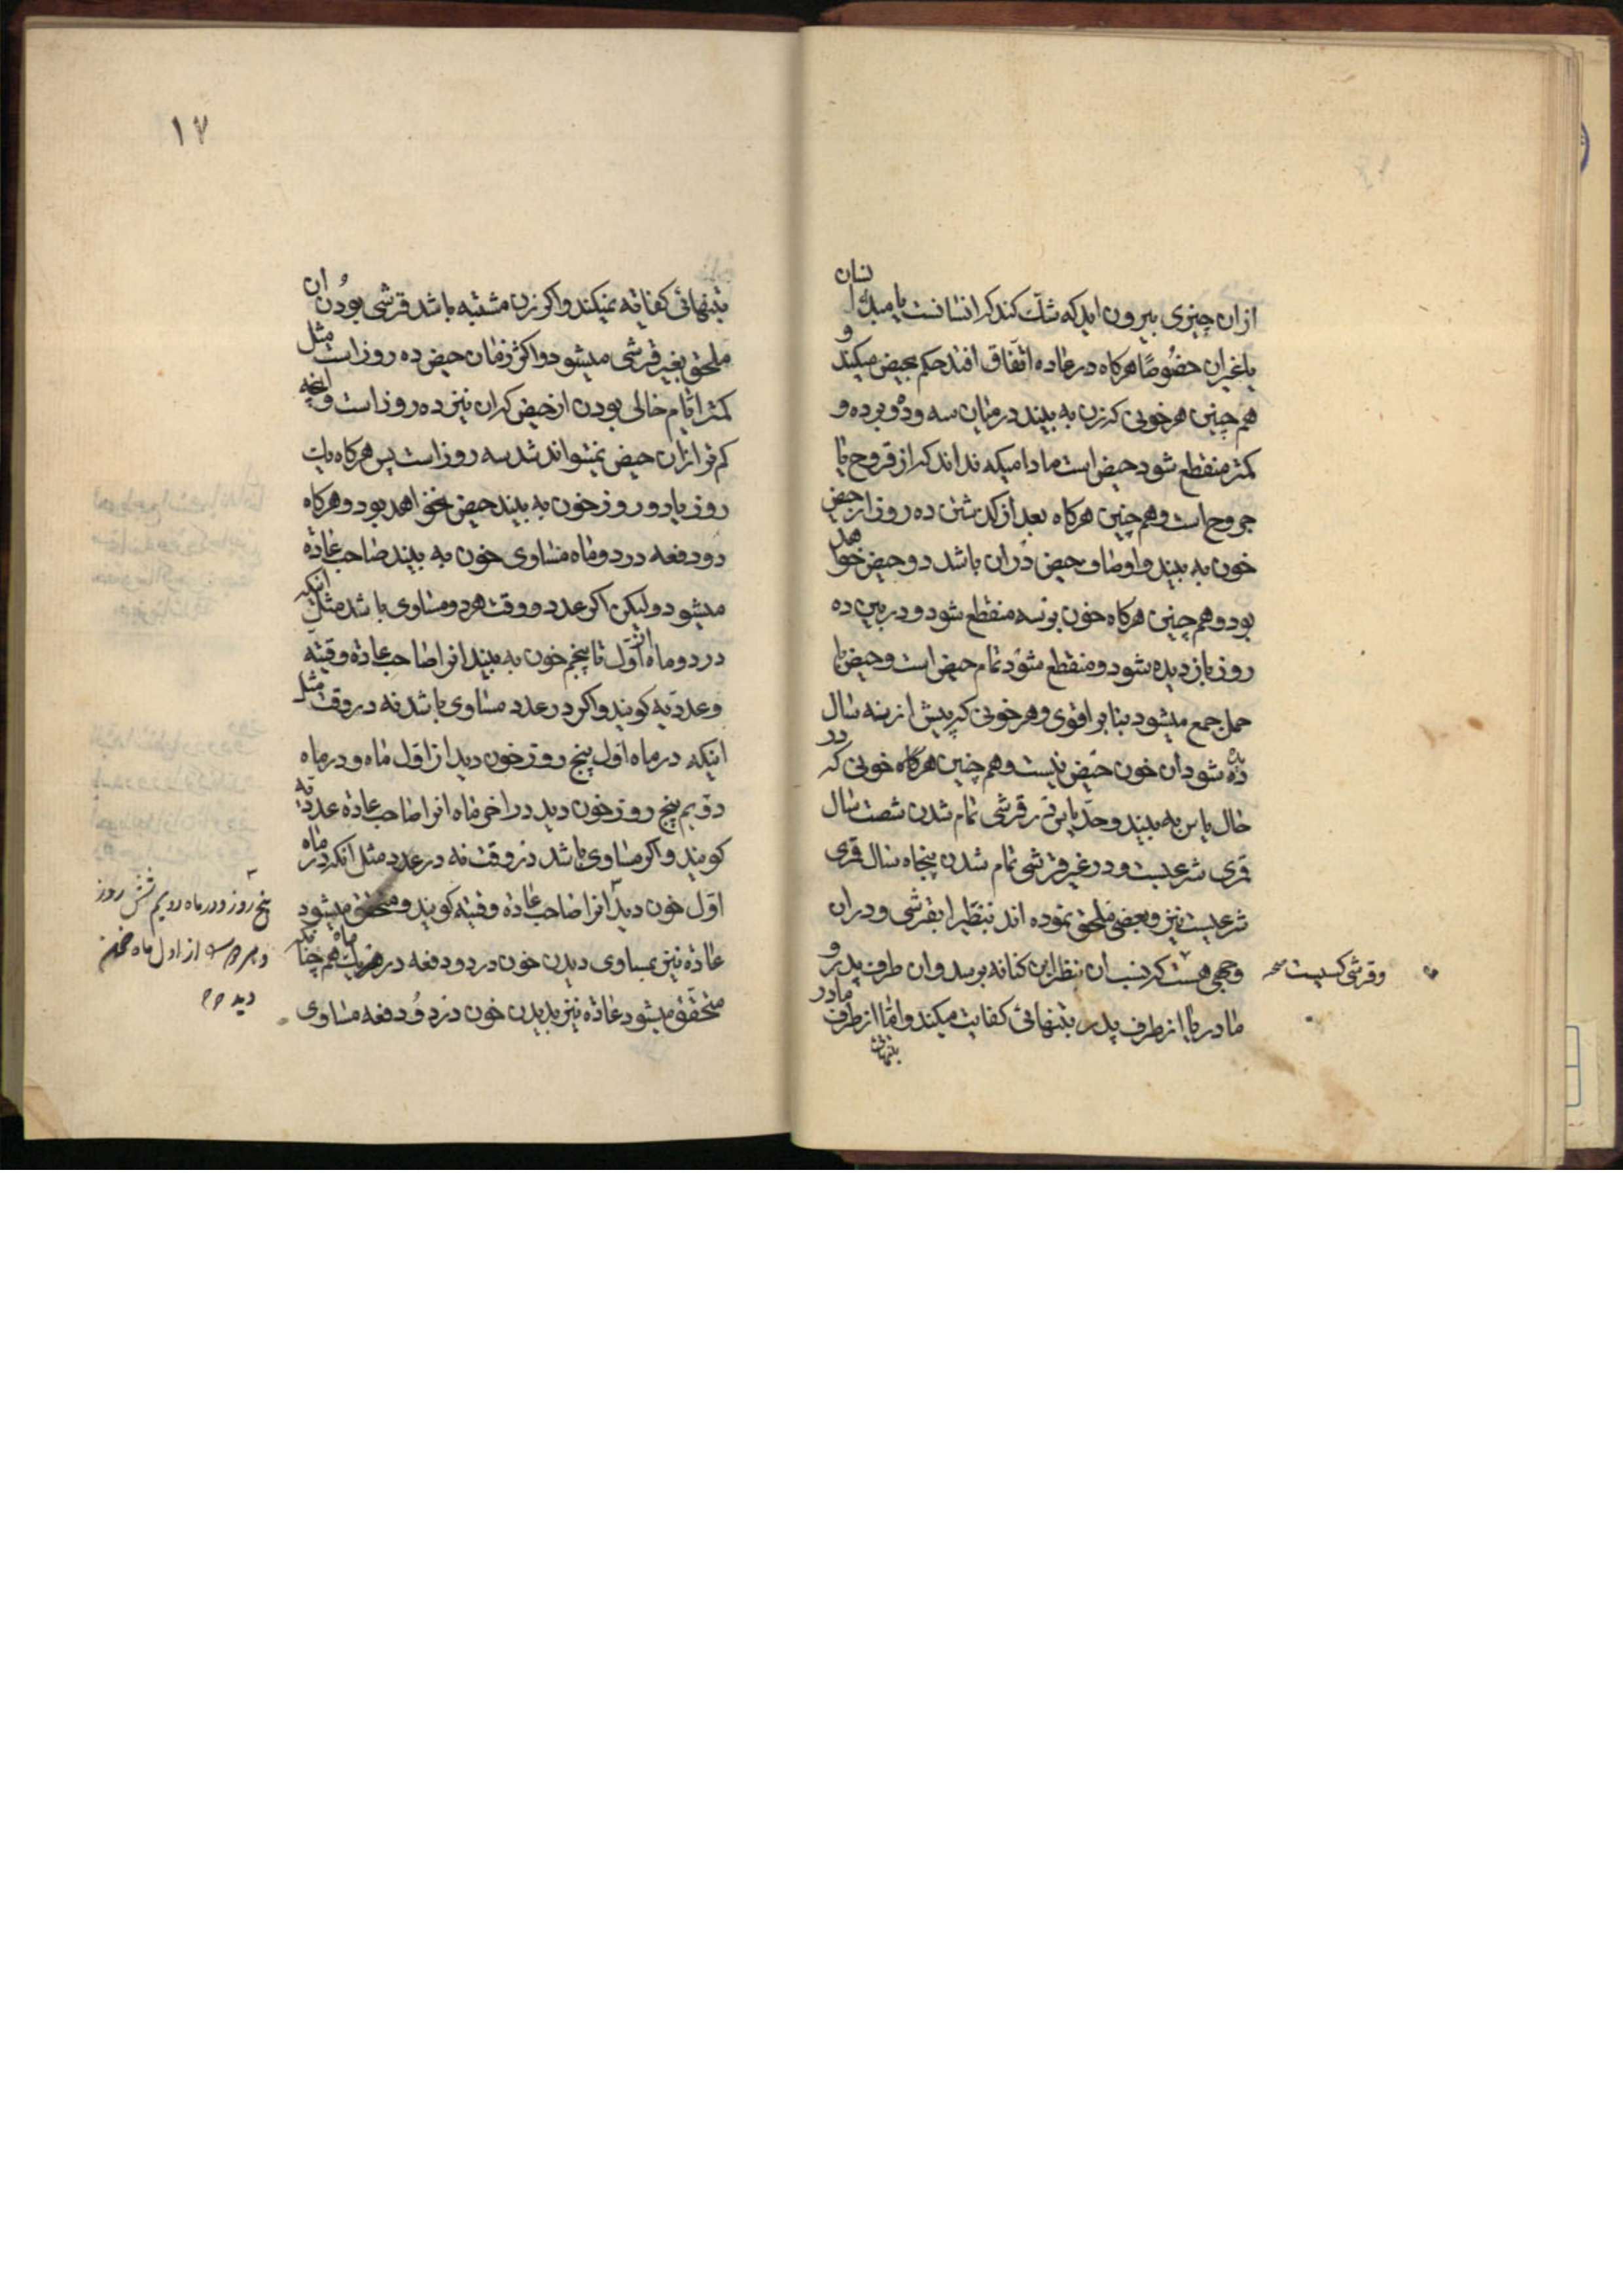 ازان چیزی بیرون اید که شک کند که انسانست یا مبدأ انسان
یا غیر ان خصوصًا هرکاه در عاده اتفاق افتد حکم بحیض میکند و
هم چنین هر خونی که زن به بیند در میان سه و ده و بر ده و
کمتر منقطع شود حیض است مادامیکه نداند که از قروح یا
جروح است و هم چنین هرکاه بعد از کذشتن ده روز از حیض
خون به بیند و اوصاف حیض دران باشد دو حیض خواهد
بود و هم چنین هرکاه خون بر سه منقطع شود و در بین ده
روز باز دیده شود و منقطع شود تمام حیض است و حیض با
حمل جمع میشود بنابر اقوی و هر خونی که پیش از نه سال
دیده شود ان خون حیض نیست و هم چنین هرکاه خونی که در
حال یاس به بیند و حد یاس در قرشی تمام شدن شصت سال
قمری شرعیست و در غیر قرشی تمام شدن پنجاه سال قمری
شرعیست نیز و بعضی ملحق نموده اند نبطیه را بقرشی و دران
وجهی هست که نسب ان بنظر ابن کنانه برسد و ان طرف پدر و
مادر یا از طرف پدر بتنهائی کفایت میکند و اما از طرف مادر
بتنهائی
وقرشی کسیست
۱۷
بتنهائی کفایة نمیکند و اکر زن مشتبه باشد قرشی بودن ان
ملحق بغیر قرشی میشود و اکثر زمان حیض ده روز است مثل
کمتر ایام خالی بودن از حیض که ان نیز ده روز است و انچه
کم تر از ان حیض نمیتواند شد سه روز است پس هرکاه یک
روز یا دو روز خون به بیند حیض نخواهد بود و هرکاه
دو دفعه در دو ماه مساوی خون به بیند صاحب عادة
میشود و لیکن اکر عدد و وقت هر دو مساوی باشد مثل انکه
در دو ماه از اوّل تا پنجم خون به بیند انرا صاحب عادة وقتیه
وعددیه کویند و اکر در عدد مساوی باشد نه در وقت مثل
اینکه در ماه اوّل پنج روز خون دید از اوّل ماه و در ماه
دویم پنج روز خون دید در اخر ماه انرا صاحب عادة عددیه
کویند و اکر مساوی باشد در وقت نه در عدد مثل انکه در ماه
اوّل خون دید انرا صاحب عادة وقتیه کویند و متحقق میشود
عادة نیز بمساوی دیدن خون در دو دفعه در هر یک ماه هم چنانکه
متحقّق میشود عادة نیز بدیدن خون در دو دفعه مساوی
پنج روز و در ماه دویم شش روز
از اول ماه خون
دید